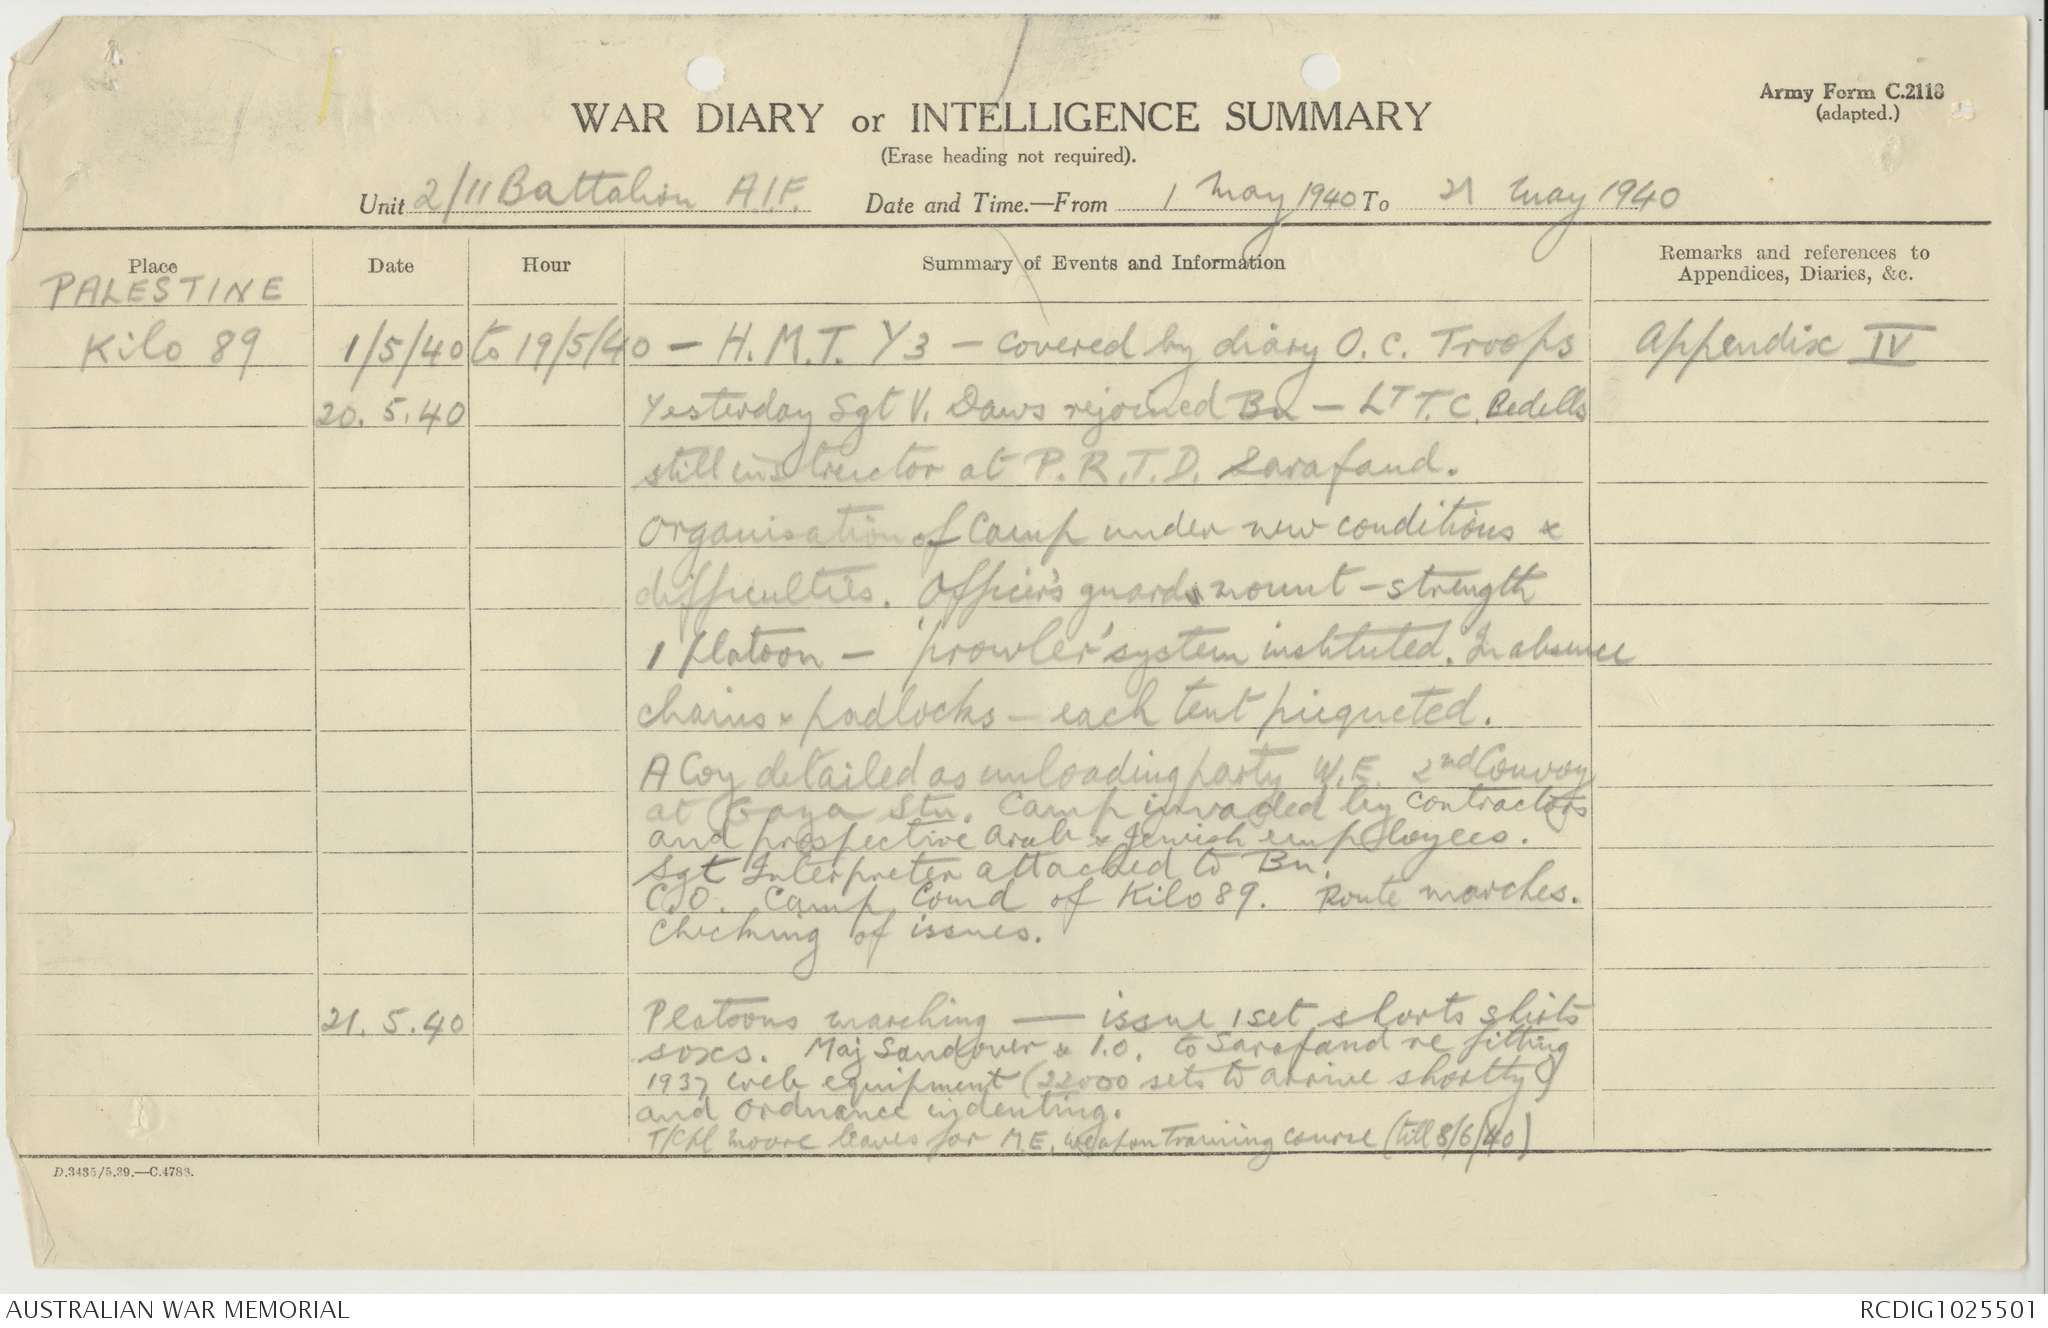 Army Form C.2118
(adapted.)
WAR DIARY or INTELLIGENCE SUMMARY
(Erase heading not required).
Unit 2/11 Battalion A.I.F. Date and Time.—From 1 May 1940 To 21 May 1940
Place Date Hour Summary of Events and Information Remarks and references to Appendices, Diaries, &c.
PALESTINE
Kilo 89 1/5/40 to 19/5/40 — H.M.T. Y3 — covered by diary O.C. Troops Appendix IV
20.5.40 Yesterday Sgt V. Daws rejoined Bn — LT T.C. Bedells
still instructor at P.R.T.D. Sarafand.
Organisation of Camp under new conditions &
difficulties. Officer's guards mount — strength
1 platoon — 'prowler' system instituted. In absence
chains & padlocks — each tent picqueted.
A Coy detailed as unloading party W.E. 2nd Convoy
at Gaza Stn. Camp invaded by contractors
and prospective Arab & Jewish employees.
Sgt Interpreter attached to Bn.
C.O. Camp Comd of Kilo 89. Route marches.
Checking of issues.
21.5.40 Platoons marching — issue 1 set shorts shirts
soxs. Maj Sandover & I.O. to Sarafand re fitting
1937 web equipment (22000 sets to arrive shortly)
and ordnance indenting.
T/Cpl Moore leaves for M.E. weapon training course (till 8/6/40)
D.3435/5.39.—C.4783.
AUSTRALIAN WAR MEMORIAL RCDIG1025501